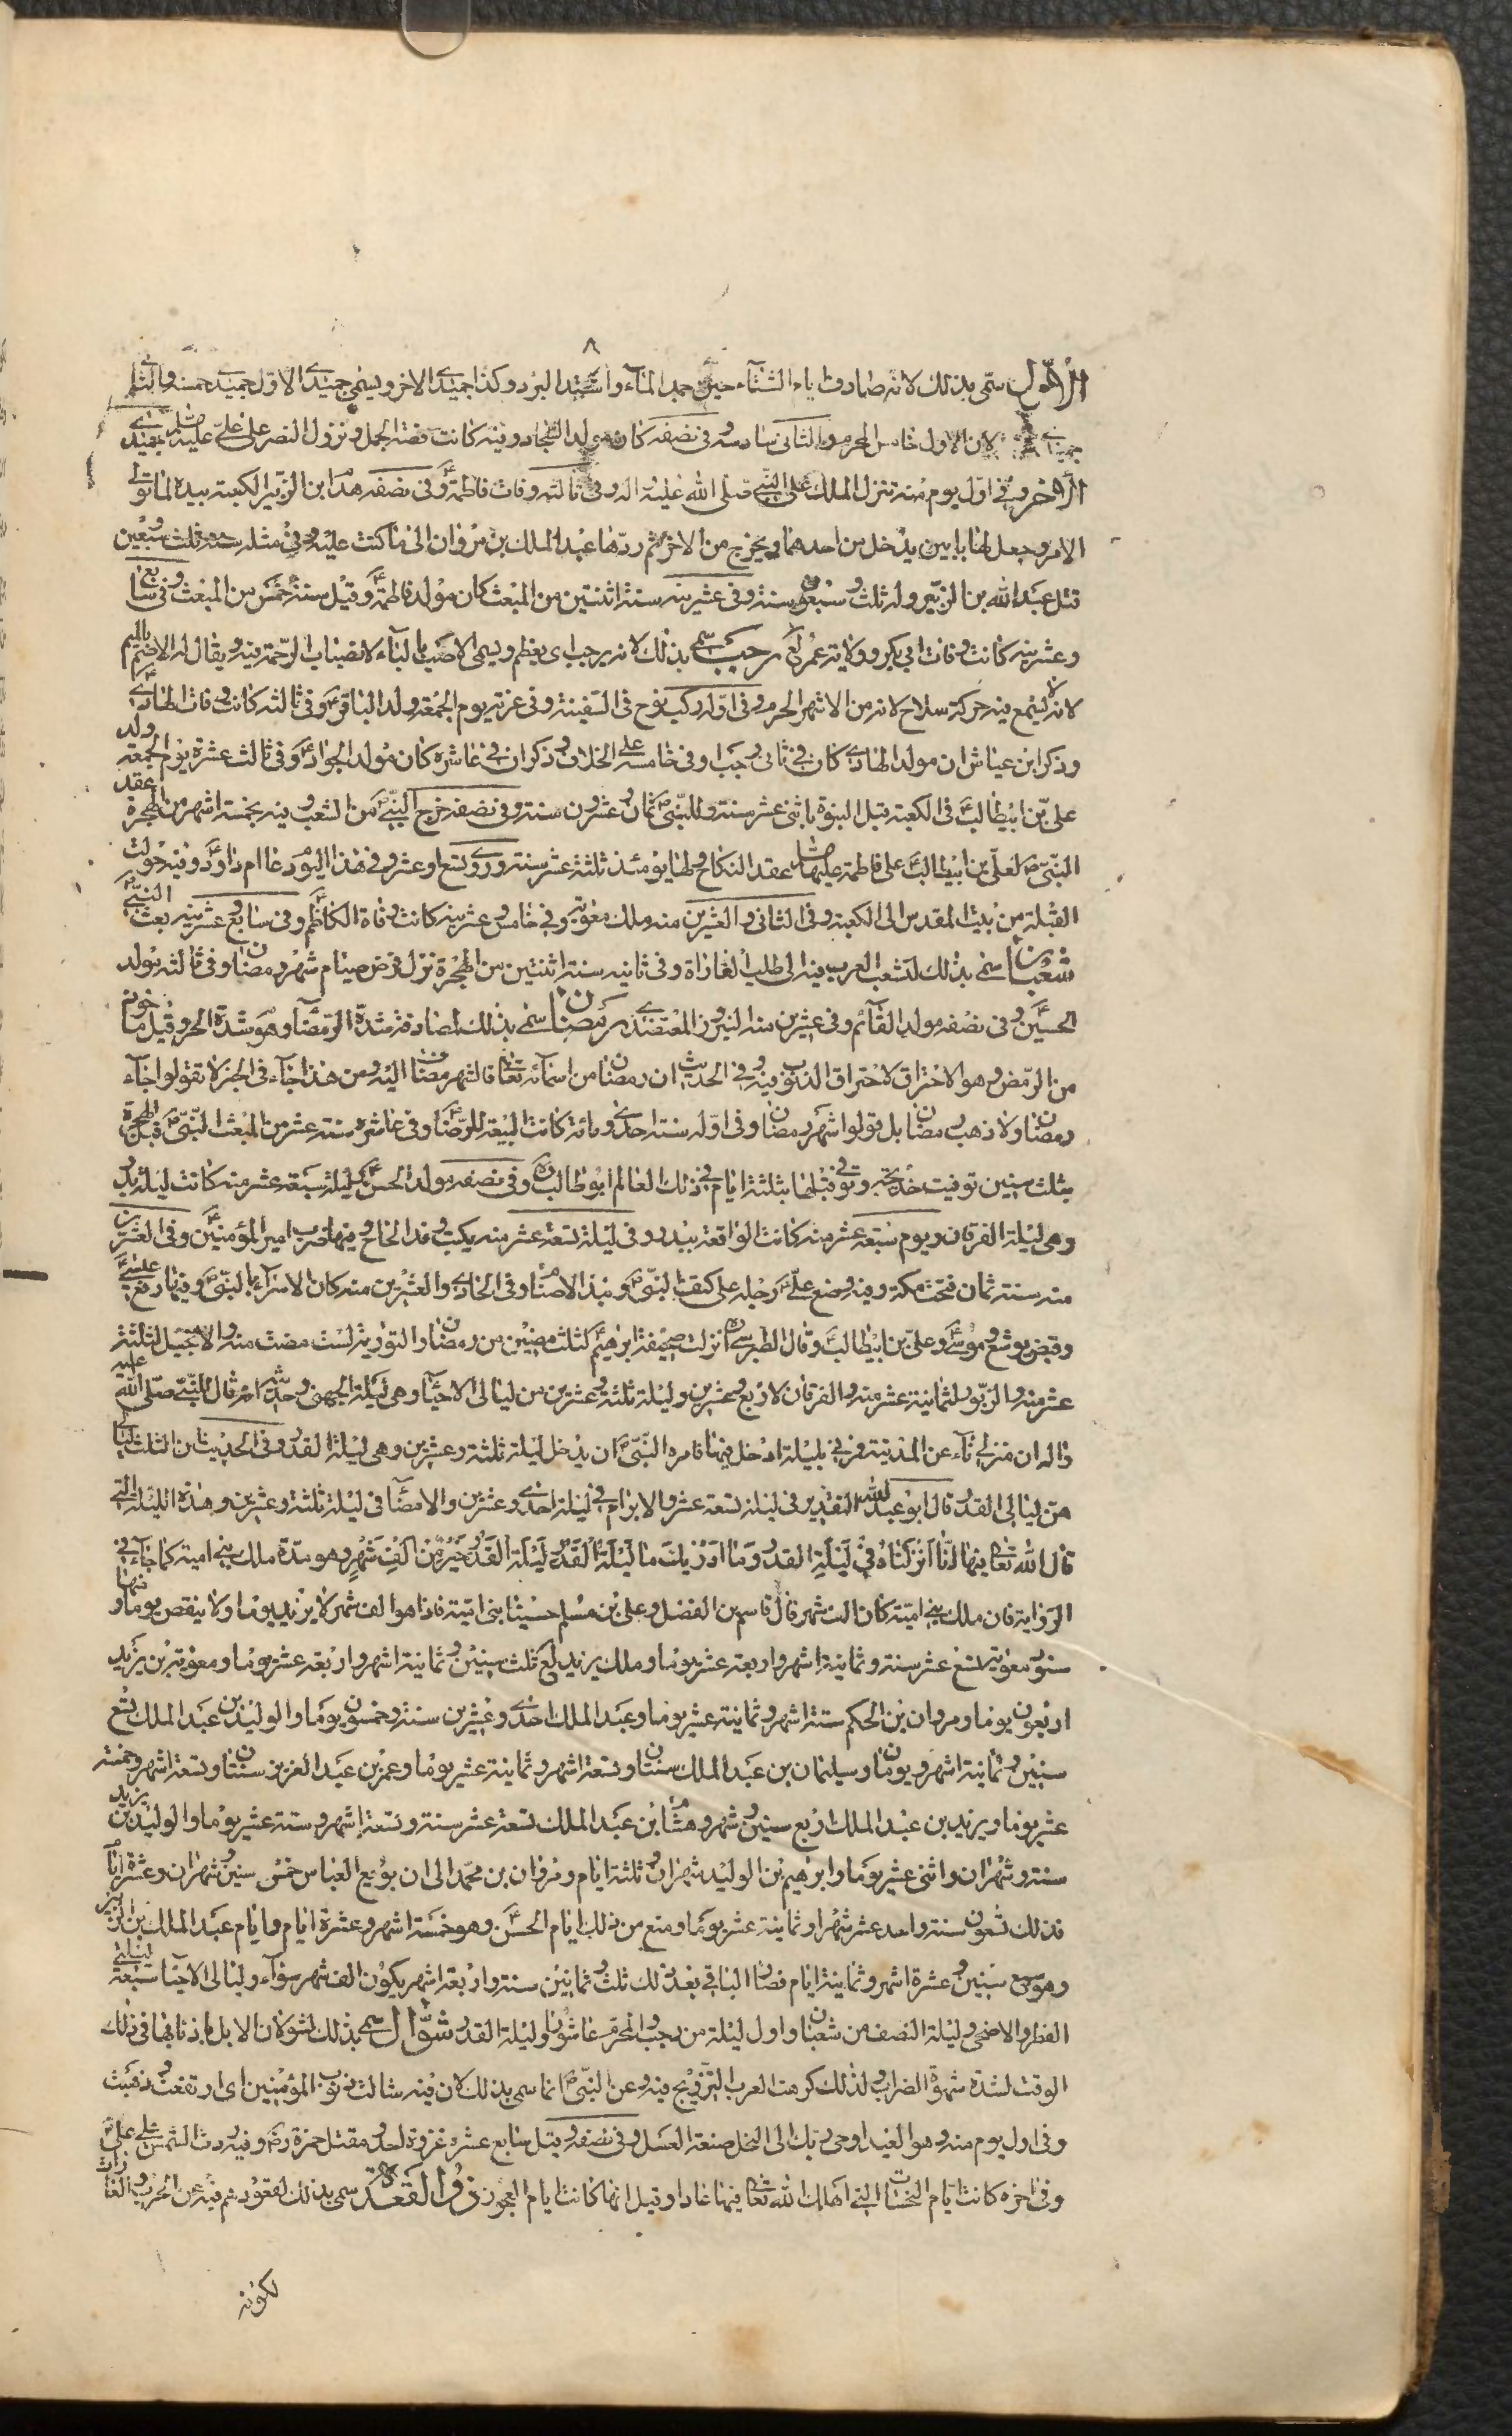 ٨
الاول سمى بذلك لانه صادف ايام الشتاء حين جمد الماء واشتد البرد وكذا جميدى الاخر ويسمى جميدى الاولى جميدى خمسة والثانى
جميدى ستة لان الاول خامس المحرم والثانى سادسه وفى نصفه كان مولد السجاد وفيه كانت قصة الجمل ونزول النصر على على عليه السلام جميدى
الاخر وفى اول يوم منه تنزل الملك على النبى صلى الله عليه واله وفى ثالثه وفات فاطمة ع وفى نصفه هدم ابن الزبير الكعبة بيده لما تولى
الامر وجعل لها بابين يدخل من احدهما ويخرج من الاخر ثم ردها عبد الملك بن مروان الى ما كانت عليه وفى مثله سنة ثلث وسبعين
قتل عبد الله بن الزبير وله ثلث وسبعون سنة وفى عشرينه سنة اثنتين من المبعث كان مولد فاطمة ع وقيل سنة خمس من المبعث وفى سابع
وعشرينه كانت وفات ابى بكر وولاية عمر رجب سمى بذلك لانه يرجب اى يعظم ويسمى الاصب بالباء لانصباب الرحمة فيه ويقال له الاصم بالميم
لانه لا يسمع فيه حركة سلاح لانه من الاشهر الحرم وفى اوله ركب نوح فى السفينة وفى غرته يوم الجمعة ولد الباقر ع وفى ثالثه كانت وفات الهادى ع
وذكر ابن عياش ان مولد الهادى كان فى ثانى رجب او فى خامسه على الخلاف وذكر ان فى عاشره كان مولد الجواد ع وفى ثالث عشره يوم الجمعة ولد
على بن ابيطالب ع فى الكعبة قبل النبوة باثنى عشر سنة وللنبى ص ثمان وعشرون سنة وفى نصفه خرج النبى ص من الشعب وفيه بخمسة اشهر من الهجرة عقد
النبى ص لعلى بن ابيطالب ع على فاطمة عليها السلام عقد النكاح ولها يومئذ ثلثة عشر سنة وروى تسع او عشر وفى هذا اليوم دعا ام داود ع وفيه حولت
القبلة من بيت المقدس الى الكعبة وفى الثانى والعشرين منه ملك معوية وفى خامس وعشرينه كانت وفاة الكاظم ع وفى سابع وعشرينه بعث النبى ص
شعبان سمى بذلك لتشعب العرب فيه الى طلب الغارات وفى ثانيه سنة اثنتين من الهجرة نزل فرض صيام شهر رمضان وفى ثالثه مولد
الحسين ع وفى نصفه مولد القائم وفى عشرين منه النيروز المعتضدى رمضان سمى بذلك لمصادفته شدة الرمضاء وهو شدة الحر وقيل ماخوذ
من الرمض وهو الاحتراق لاحتراق الذنوب فيه وفى الحديث ان رمضان من اسمائه تعالى فالشهر مضاف اليه ومن هذا جاء فى الخبر لا تقولوا جاء
رمضان ولا ذهب رمضان بل قولوا شهر رمضان وفى اوله سنة احدى ومائة كانت البيعة للرضا ع وفى عاشره سنة عشر من المبعث للنبى ص قبل الهجرة
بثلث سنين توفيت خديجة وتوفى قبلها بثلثة ايام فى ذلك العام ابو طالب ره وفى نصفه مولد الحسن ع وليلة سبعة عشر منه كانت ليلة بدر
وهى ليلة الفرقان ويوم سبعة عشر منه كانت الواقعة ببدر وفى ليلة تسعة عشر منه يكتب وفد الحاج وفيها ضرب امير المؤمنين ع وفى العشرين
منه سنة ثمان فتحت مكة وفيه وضع على ع رجله على كتف النبى ص ونبذ الاصنام وفى الحادى والعشرين منه كان الاسراء بالنبى ص وفيها رفع عيسى ع
وقبض يوشع وموسى ع وعلى بن ابيطالب ع وقال الطبرسى ره انزلت صحيفة ابراهيم ع لثلث مضين من رمضان والتورية لست مضت منه والانجيل لثلثة
عشر منه والزبور لثمانية عشر منه والفرقان لاربع وعشرين وليلة ثلثة وعشرين من ليالى الاحياء وهى ليلة الجهنى وحديثه انه قال للنبى صلى الله عليه
واله ان منزلى ناء عن المدينة فمرنى بليلة ادخل فيها فامره النبى ص ان يدخل ليلة ثلثة وعشرين وهى ليلة القدر وفى الحديث ان الثلث ليالى
هن ليالى القدر قال ابو عبد الله ع التقدير فى ليلة تسعة عشر والابرام فى ليلة احدى وعشرين والامضاء فى ليلة ثلثة وعشرين وهذه الليلة التى
قال الله تعالى فيها انا انزلناه فى ليلة القدر وما ادريك ما ليلة القدر ليلة القدر خير من الف شهر وهو مدة ملك بنى امية كما جاء فى
الرواية فان ملك بنى امية كان الف شهر قال قاسم بن الفضل وعلى بن مسلم حسبنا بنى امية فاذا هو الف شهر لا يزيد يوما ولا ينقص يوما فمنها
سنو معوية تسع عشر سنة وثمانية اشهر واربعة عشر يوما وملك يزيد ثلث سنين وثمانية اشهر واربعة عشر يوما ومعوية بن يزيد
اربعون يوما ومروان بن الحكم ستة اشهر وثمانية عشر يوما وعبد الملك احدى وعشرين سنة وخمسون يوما والوليد بن عبد الملك تسع
سنين وثمانية اشهر ويومان وسليمان بن عبد الملك سنتان وتسعة اشهر وثمانية عشر يوما وعمر بن عبد العزيز سنتان وتسعة اشهر وخمسة
عشر يوما ويزيد بن عبد الملك اربع سنين وشهر وهشام بن عبد الملك تسعة عشر سنة وتسعة اشهر وستة عشر يوما والوليد بن يزيد
سنة وشهران واثنى عشر يوما وابرهيم بن الوليد شهران وثلثة ايام ومروان بن محمد الى ان بويع العباس خمس سنين وشهران وعشرة ايام
فذلك تسعون سنة واحد عشر شهرا وثمانية عشر يوما ومنع من ذلك ايام الحسن ع وهو خمسة اشهر وعشرة ايام وايام عبد الملك بن الزبير
وهو سبع سنين وعشرة اشهر وثمانية ايام فصار الباقى بعد ذلك ثلث وثمانين سنة واربعة اشهر يكون الف شهر سواء وليالى الاحيا سبعة ليلتى
الفطر والاضحى وليلة النصف من شعبان واول ليلة من رجب والمحرم عاشورا وليلة القدر شوال سمى بذلك لشولان الابل باذنابها فى ذلك
الوقت لشدة شهوة الضراب ولذلك كرهت العرب التزويج فيه وعن النبى ص انما سمى بذلك لان فيه شالت ذنوب المؤمنين اى ارتفعت وذهبت
وفى اول يوم منه وهو العيد اوحى ربك الى النحل صنعة العسل وفى نصفه وقيل سابع عشره غزوة احد ومقتل حمزة رض وفيه ردت الشمس على على ع
وفى اخره كانت ايام النحسات التى اهلك الله تعالى فيها عادا وقيل انها كانت ايام العجوز ذو القعدة سمى بذلك لقعودهم فيه عن الحرب والغارات
لكونه